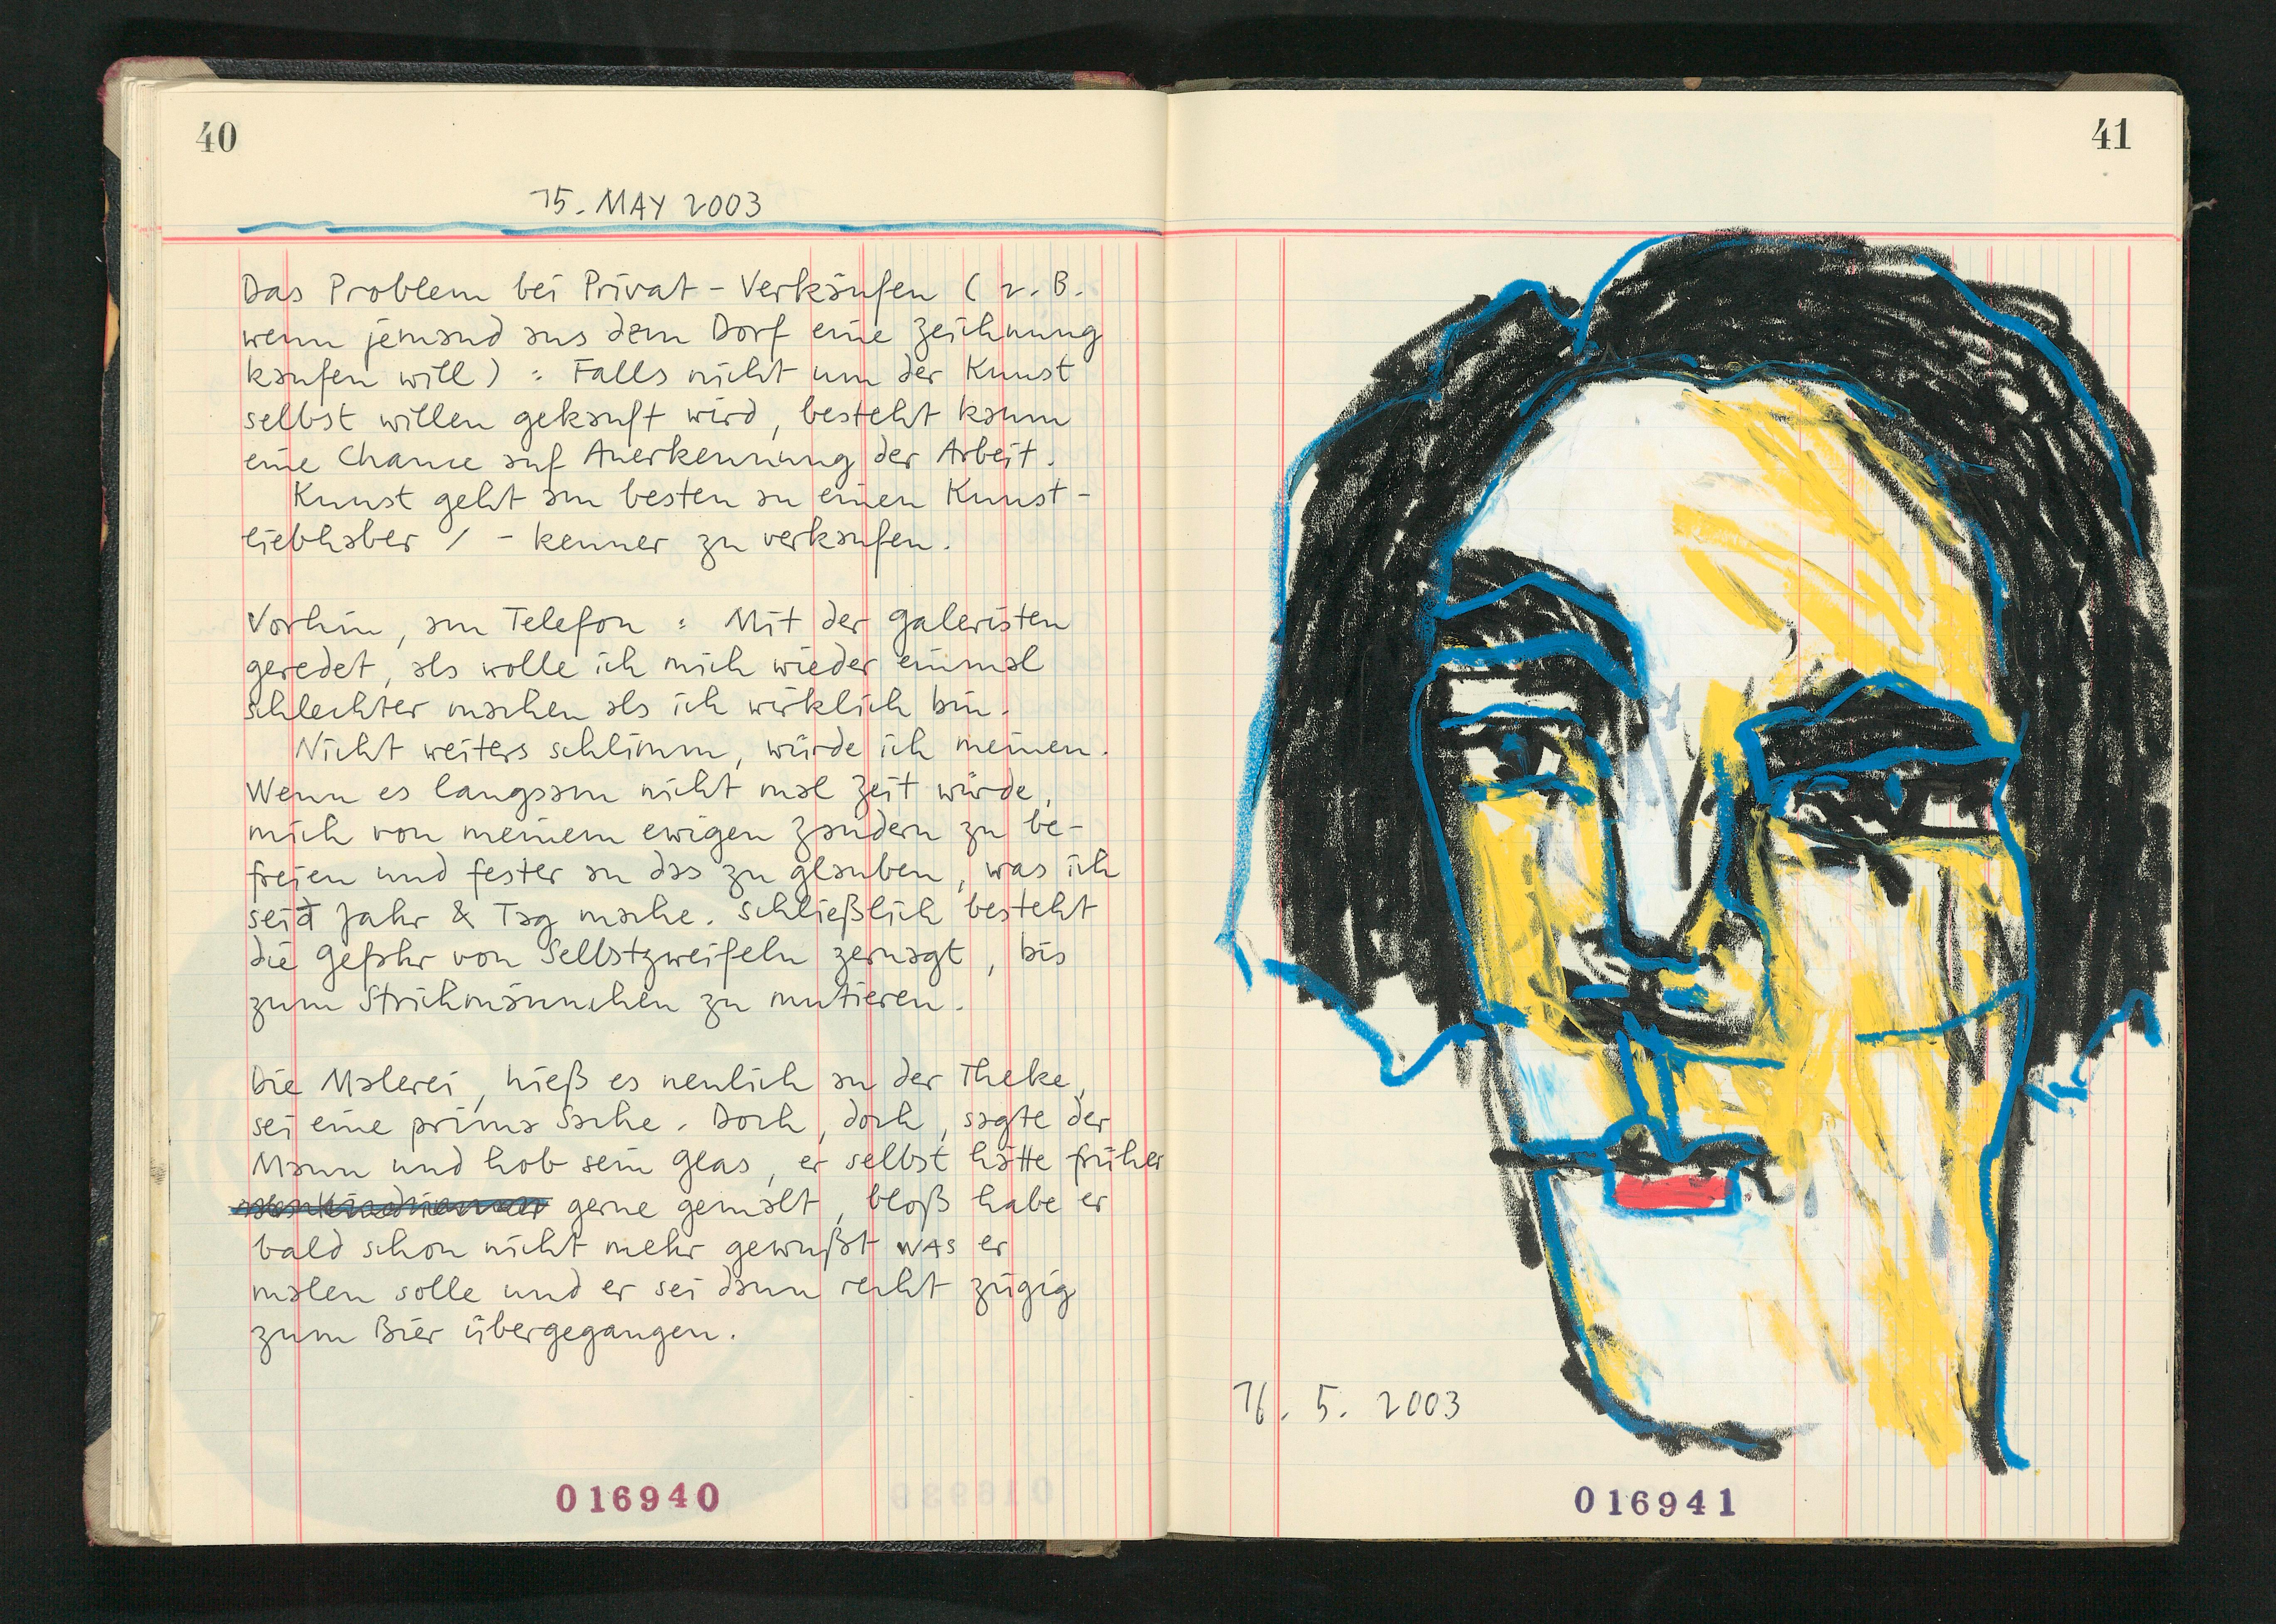 40
15. MAY 2003
Das Problem bei Privat-Verkäufen (z.B.
wenn jemand aus dem Dorf eine Zeichnung
kaufen will) : Falls nicht um der Kunst
selbst willen gekauft wird, besteht kaum
eine Chance auf Anerkennung der Arbeit.
Kunst geht am besten an einen Kunst-
liebhaber / -kenner zu verkaufen.
Vorhin, am Telefon : Mit der Galeristen
geredet, als wolle ich mich wieder einmal
schlechter machen als ich wirklich bin.
Nicht weiters schlimm, würde ich meinen.
Wenn es langsam nicht mal Zeit würde,
mich von meinem ewigen Zaudern zu be-
freien und fester an das zu glauben, was ich
seit Jahr & Tag mache. Schließlich besteht
die Gefahr von Selbstzweifeln zernagt, bis
zum Strichmännchen zu mutieren.
Die Malerei, hieß es neulich an der Theke,
sei eine prima Sache. Doch, doch, sagte der
Mann und hob sein Glas, er selbst hätte früher
gerne gemalt, bloß habe er
bald schon nicht mehr gewußt WAS er
malen solle und er sei dann recht zügig
zum Bier übergegangen.
016940
41
16. 5. 2003
016941